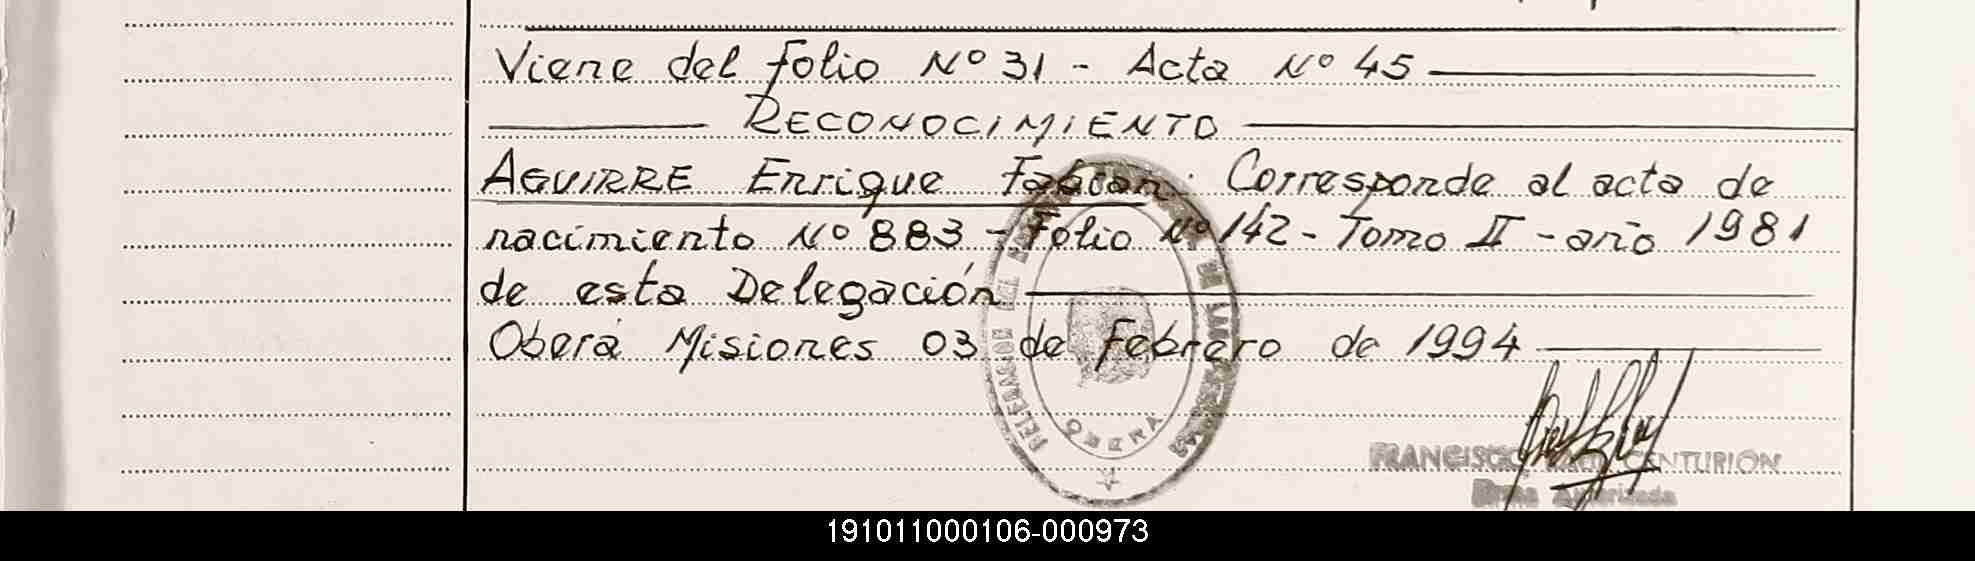 Viene del folio Nº 31 - Acta Nº 45
RECONOCIMIENTO
AGUIRRE Enrique Fabian. Corresponde al acta de
nacimiento Nº 883 - Folio Nº 142 - Tomo II - año 1981
de esta Delegación
Oberá Misiones 03 de Febrero de 1994
DELEGACION DEL DE LAS PERSONAS
OBERA
FRANCISCO CENTURION
Firma Autorizada
191011000106-000973